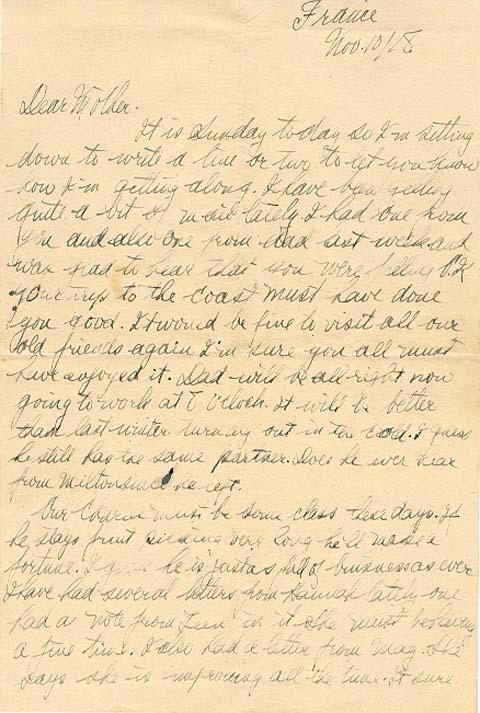 France
Nov. 10/18
Dear Mother.
It is Sunday today so I'm sitting
down to write a line or two to let you know
how I'm getting along. I have been getting
quite a bit of mail lately I had one from
you and also one from dad last week and
was glad to hear that you were feeling O.K
your trip to the coast must have done
you good. It would be fine to visit all our
old friends again I'm sure you all must
have enjoyed it. Dad will be all right now
going to work at 7 O'clock. It will be better
than last winter turning out in the cold. I guess
he still has the same partner. Does he ever hear
from Milton since he left.
Our must be some class these days. If
he stays fruit picking very long he'll make a
fortune. I guess he is just as full of business as ever
I have had several letters from Hannah lately one
had a note from Teen in it she must be having
a fine time. I also had a letter from Mag. She
says she is improving all the time. It sure